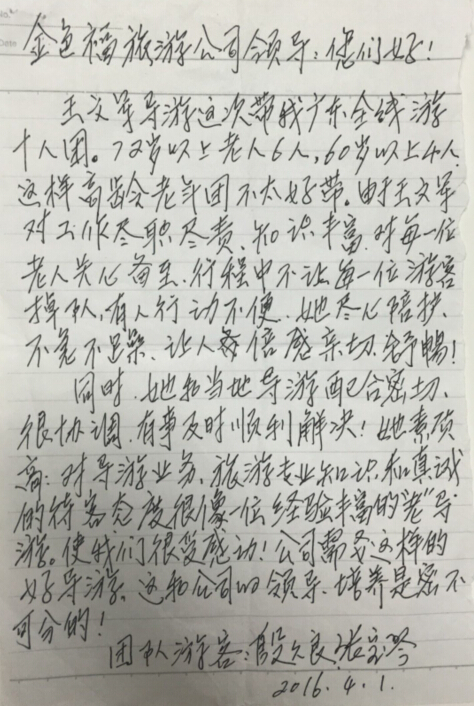 金色福旅游公司领导：您们好！
王文军导游这次带我广东全线游
十人团。72岁以上老人6人，60岁以上4人，
这样高龄老年团不太好带。由于王文军
对工作尽职尽责，知识丰富，对每一位
老人关心备至，行程中不让每一位游客
掉队，有人行动不便，她尽心陪护，
不急不躁，让人每倍感亲切、舒畅！
同时，她和当地导游配合密切，
很协调，有事及时顺利解决！她素质
高：对导游业务、旅游专业知识和真诚
的待客态度很像一位经验丰富的"老"导
游。使我们很受感动！公司需要这样的
好导游，这和公司的领导、培养是密不
可分的！
团队游客：殷久良 张宝琴
2016.4.1.